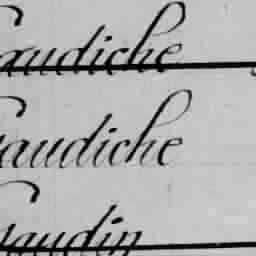 Gaudiche
Gaudiche
Gaudin